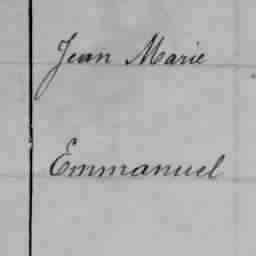 Jean Marie
Emmanuel